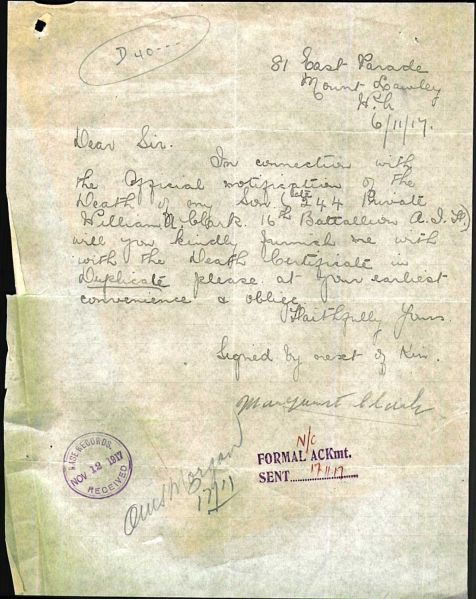 D 40
81 East Parade
Mount Lawley
W.A
6/11/17.
Dear Sir.
In connection with
the Official notification of the
Death of my Son (late 244 Private
William A. Clark. 16th Battallion A.I.F.)
will you kindly furnish me with
with the Death Certificate in
Duplicate please at your earliest
convenience & oblige
Faithfully Yours
Signed by next of Kin.
Margaret Clark
BASE RECORDS.
NOV 12 1917
RECEIVED
Morgan
17/11
N/C
FORMAL ACKmt.
SENT 17.11.17